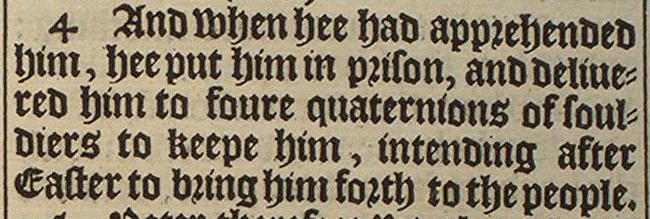 4 And when hee had apprehended
him, hee put him in priſon, and deliue⸗
red him to foure quaternions of ſoul⸗
diers to keepe him, intending after
Eaſter to bring him forth to the people.